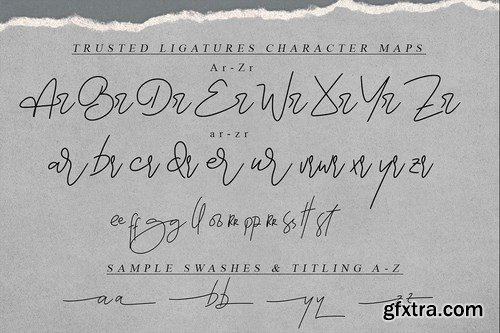 TRUSTED LIGATURES CHARACTER MAPS
Ar-Zr
Ar Br Dr Er Wr Xr Yr Zr
ar-zr
ar br cr dr er ur vr wr xr yr zr
ee ff gg ll oo rr pp rr ss tt st
SAMPLE SWASHES & TITLING A-Z
aa bb yy zz
gfxtra.com